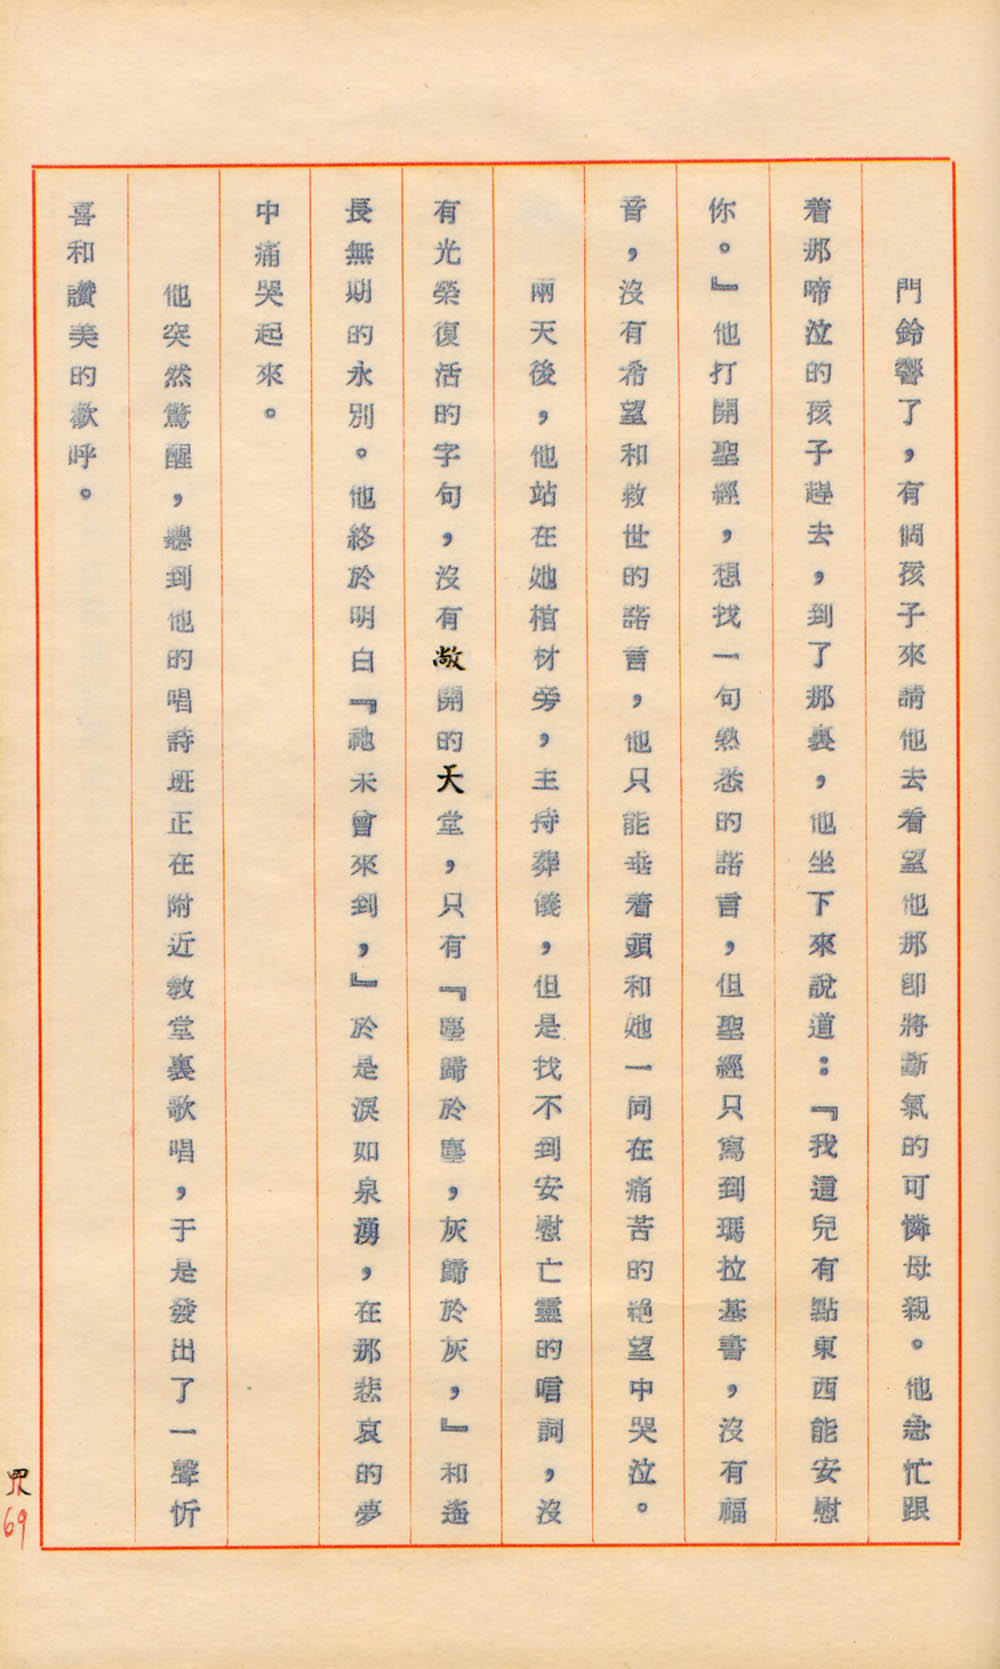 門鈴響了，有個孩子來請他去看望他那卽將斷氣的可憐母親。他急忙跟
着那啼泣的孩子趕去，到了那裏，他坐下來說道：『我這兒有點東西能安慰
你。』他打開聖經，想找一句熟悉的諾言，但聖經只寫到瑪拉基書，沒有福
音，沒有希望和救世的諾言，他只能垂着頭和她一同在痛苦的絕望中哭泣。
兩天後，他站在她棺材旁，主持葬儀，但是找不到安慰亡靈的唁詞，沒
有光榮復活的字句，沒有敞開的天堂，只有『塵歸於塵，灰歸於灰，』和遙
長無期的永別。他終於明白『祂未曾來到，』於是淚如泉湧，在那悲哀的夢
中痛哭起來。
他突然驚醒，聽到他的唱詩班正在附近教堂裏歌唱，于是發出了一聲忻
喜和讚美的歡呼。
69